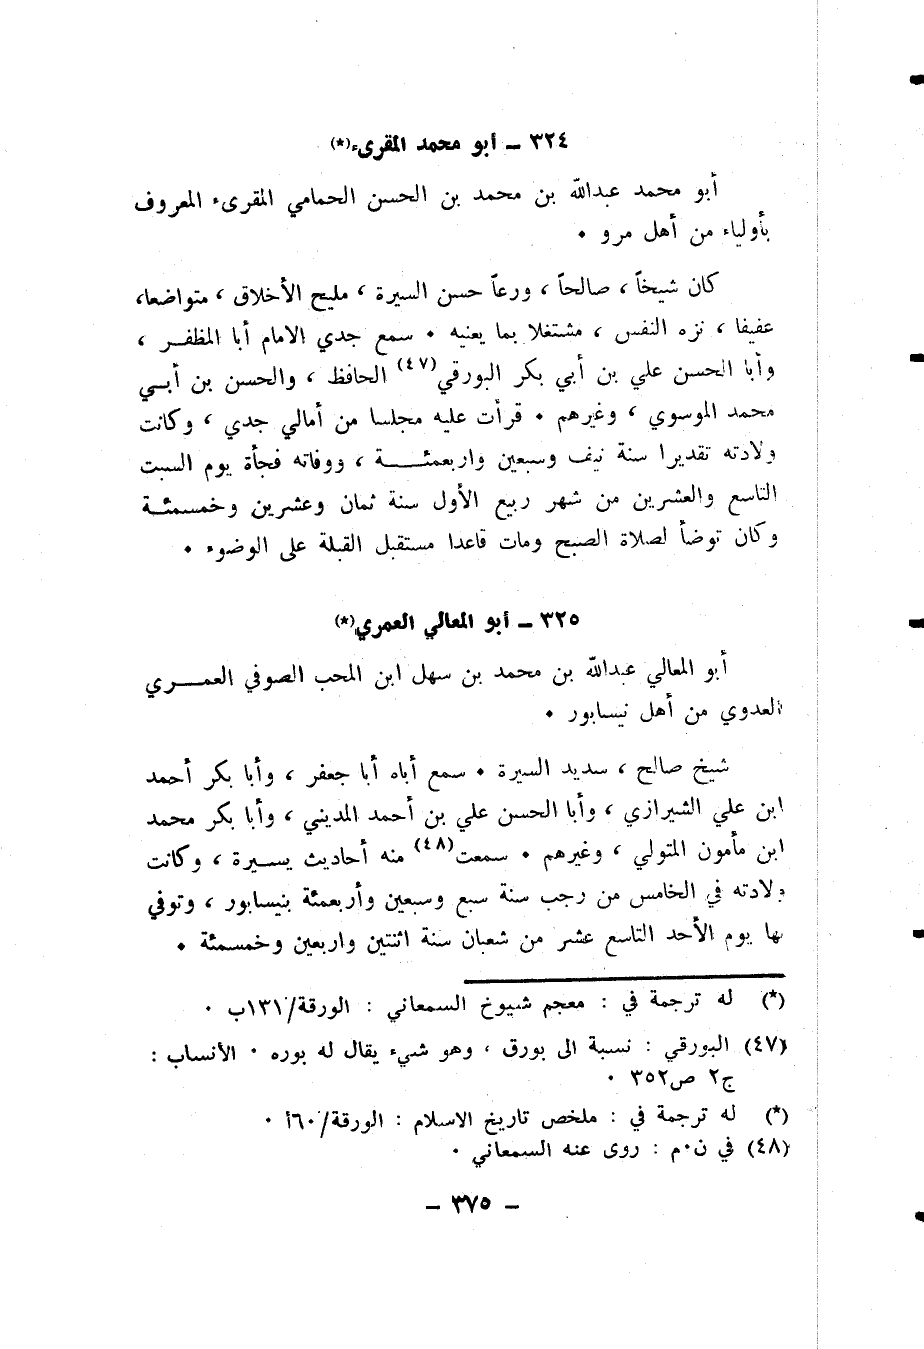 ٣٢٤ ــ أبو محمد المقرىء(*)
أبو محمد عبدالله بن محمد بن الحسن الحمامي المقرىء المعروف
بأولياء من أهل مرو ٠
كان شيخاً ، صالحاً ، ورعاً حسن السيرة ، مليح الأخلاق ، متواضعا،
عفيفا ، نزه النفس ، مشتغلا بما يعنيه ٠ سمع جدي الامام أبا المظفــر ،
وأبا الحسن علي بن أبي بكر البورقي(٤٧) الحافظ ، والحسن بن أبــي
محمد الموسوي ، وغيرهم ٠ قرأت عليه مجلسا من أمالي جدي ، وكانت
ولادته تقديرا سنة نيف وسبعين واربعمئــــة ، ووفاته فجأة يوم السبت
التاسع والعشرين من شهر ربيع الأول سنة ثمان وعشرين وخمسمئــة
وكان توضأ لصلاة الصبح ومات قاعدا مستقبل القبلة على الوضوء ٠
٣٢٥ ــ أبو المعالي العمري(*)
أبو المعالي عبدالله بن محمد بن سهل ابن المحب الصوفي العمــــري
العدوي من أهل نيسابور ٠
شيخ صالح ، سديد السيرة ٠ سمع أباه أبا جعفر ، وأبا بكر أحمد
ابن علي الشيرازي ، وأبا الحسن علي بن أحمد المديني ، وأبا بكر محمد
ابن مأمون المتولي ، وغيرهم ٠ سمعت(٤٨) منه أحاديث يســيرة ، وكانت
ولادته في الخامس من رجب سنة سبع وسبعين وأربعمئة بنيسابور ، وتوفي
بها يوم الأحد التاسع عشر من شعبان سنة اثنتين واربعين وخمسمئة ٠
(*) له ترجمة في : معجم شيوخ السمعاني : الورقة/١٣١ب ٠
(٤٧) البورقي : نسبة الى بورق ، وهو شيء يقال له بوره ٠ الأنساب :
ج٢ ص٣٥٢ ٠
(*) له ترجمة في : ملخص تاريخ الاسلام : الورقة/٦٠أ ٠
(٤٨) في ن٠م : روى عنه السمعاني ٠
ــ ٣٧٥ ــ